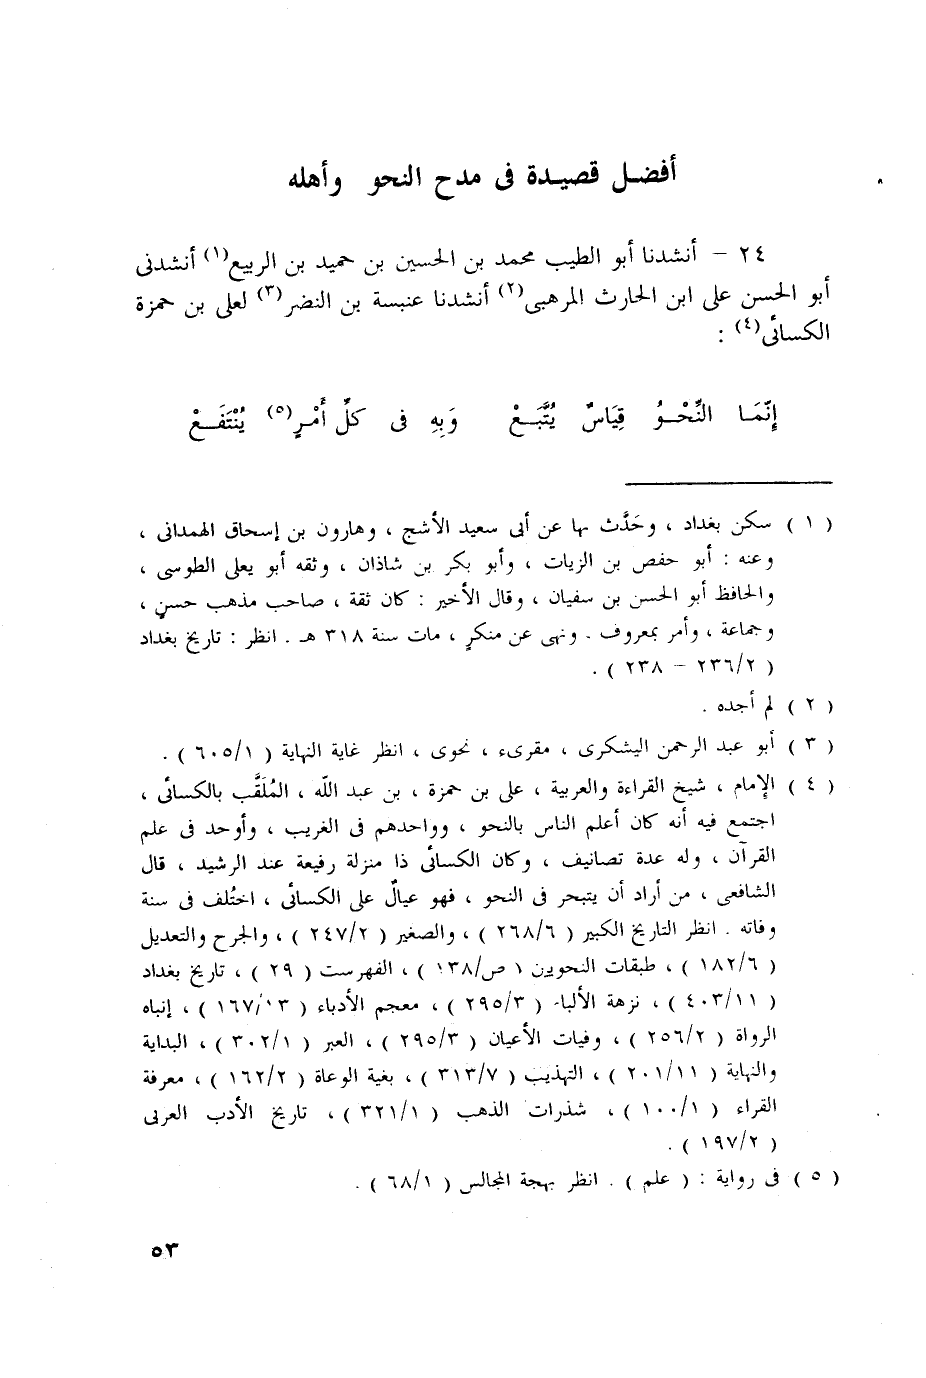 أفضل قصيدة فى مدح النحو وأهله
٢٤ – أنشدنا أبو الطيب محمد بن الحسين بن حميد بن الربيع(١) أنشدنى
أبو الحسن على ابن الحارث المرهبى(٢) أنشدنا عنبسة بن النضر(٣) لعلى بن حمزة
الكسائى(٤) :
إِنَّمَا النَّحْوُ قِيَاسٌ يُتَّبَعْ وَبِهِ فى كلِّ أَمْرٍ(٥) يُنْتَفَعْ
( ١ ) سكن بغداد ، وحَدَّث بها عن أبى سعيد الأشج ، وهارون بن إسحاق الهمدانى ،
وعنه : أبو حفص بن الزيات ، وأبو بكر بن شاذان ، وثقه أبو يعلى الطوسى ،
والحافظ أبو الحسن بن سفيان ، وقال الأخير : كان ثقة ، صاحب مذهب حسنٍ ،
وجماعة ، وأمر بمعروف . ونهى عن منكرٍ ، مات سنة ٣١٨ هـ . انظر : تاريخ بغداد
( ٢٣٦/٢ – ٢٣٨ ) .
( ٢ ) لم أجده .
( ٣ ) أبو عبد الرحمن اليشكرى ، مقرىء ، نحوى ، انظر غاية النهاية ( ٦٠٥/١ ) .
( ٤ ) الإمام ، شيخ القراءة والعربية ، على بن حمزة ، بن عبد الله ، المُلَقَّب بالكسائى ،
اجتمع فيه أنه كان أعلم الناس بالنحو ، وواحدهم فى الغريب ، وأوحد فى علم
القرآن ، وله عدة تصانيف ، وكان الكسائى ذا منزلة رفيعة عند الرشيد ، قال
الشافعى ، من أراد أن يتبحر فى النحو ، فهو عيالٌ على الكسائى ، اختُلف فى سنة
وفاته . انظر التاريخ الكبير ( ٢٦٨/٦ ) ، والصغير ( ٢٤٧/٢ ) ، والجرح والتعديل
( ١٨٢/٦ ) ، طبقات النحوين ( ص/١٣٨ ) ، الفهرست ( ٢٩ ) ، تاريخ بغداد
( ٤٠٣/١١ ) ، نزهة الألباء ( ٢٩٥/٣ ) ، معجم الأدباء ( ١٦٧/١٣ ) ، إنباه
الرواة ( ٢٥٦/٢ ) ، وفيات الأعيان ( ٢٩٥/٣ ) ، العبر ( ٣٠٢/١ ) ، البداية
والنهاية ( ٢٠١/١١ ) ، التهذيب ( ٣١٣/٧ ) ، بغية الوعاة ( ١٦٢/٢ ) ، معرفة
القراء ( ١٠٠/١ ) ، شذرات الذهب ( ٣٢١/١ ) ، تاريخ الأدب العربى
( ١٩٧/٢ ) .
( ٥ ) فى رواية : ( علم ) . انظر بهجة المجالس ( ٦٨/١ ) .
٥٣